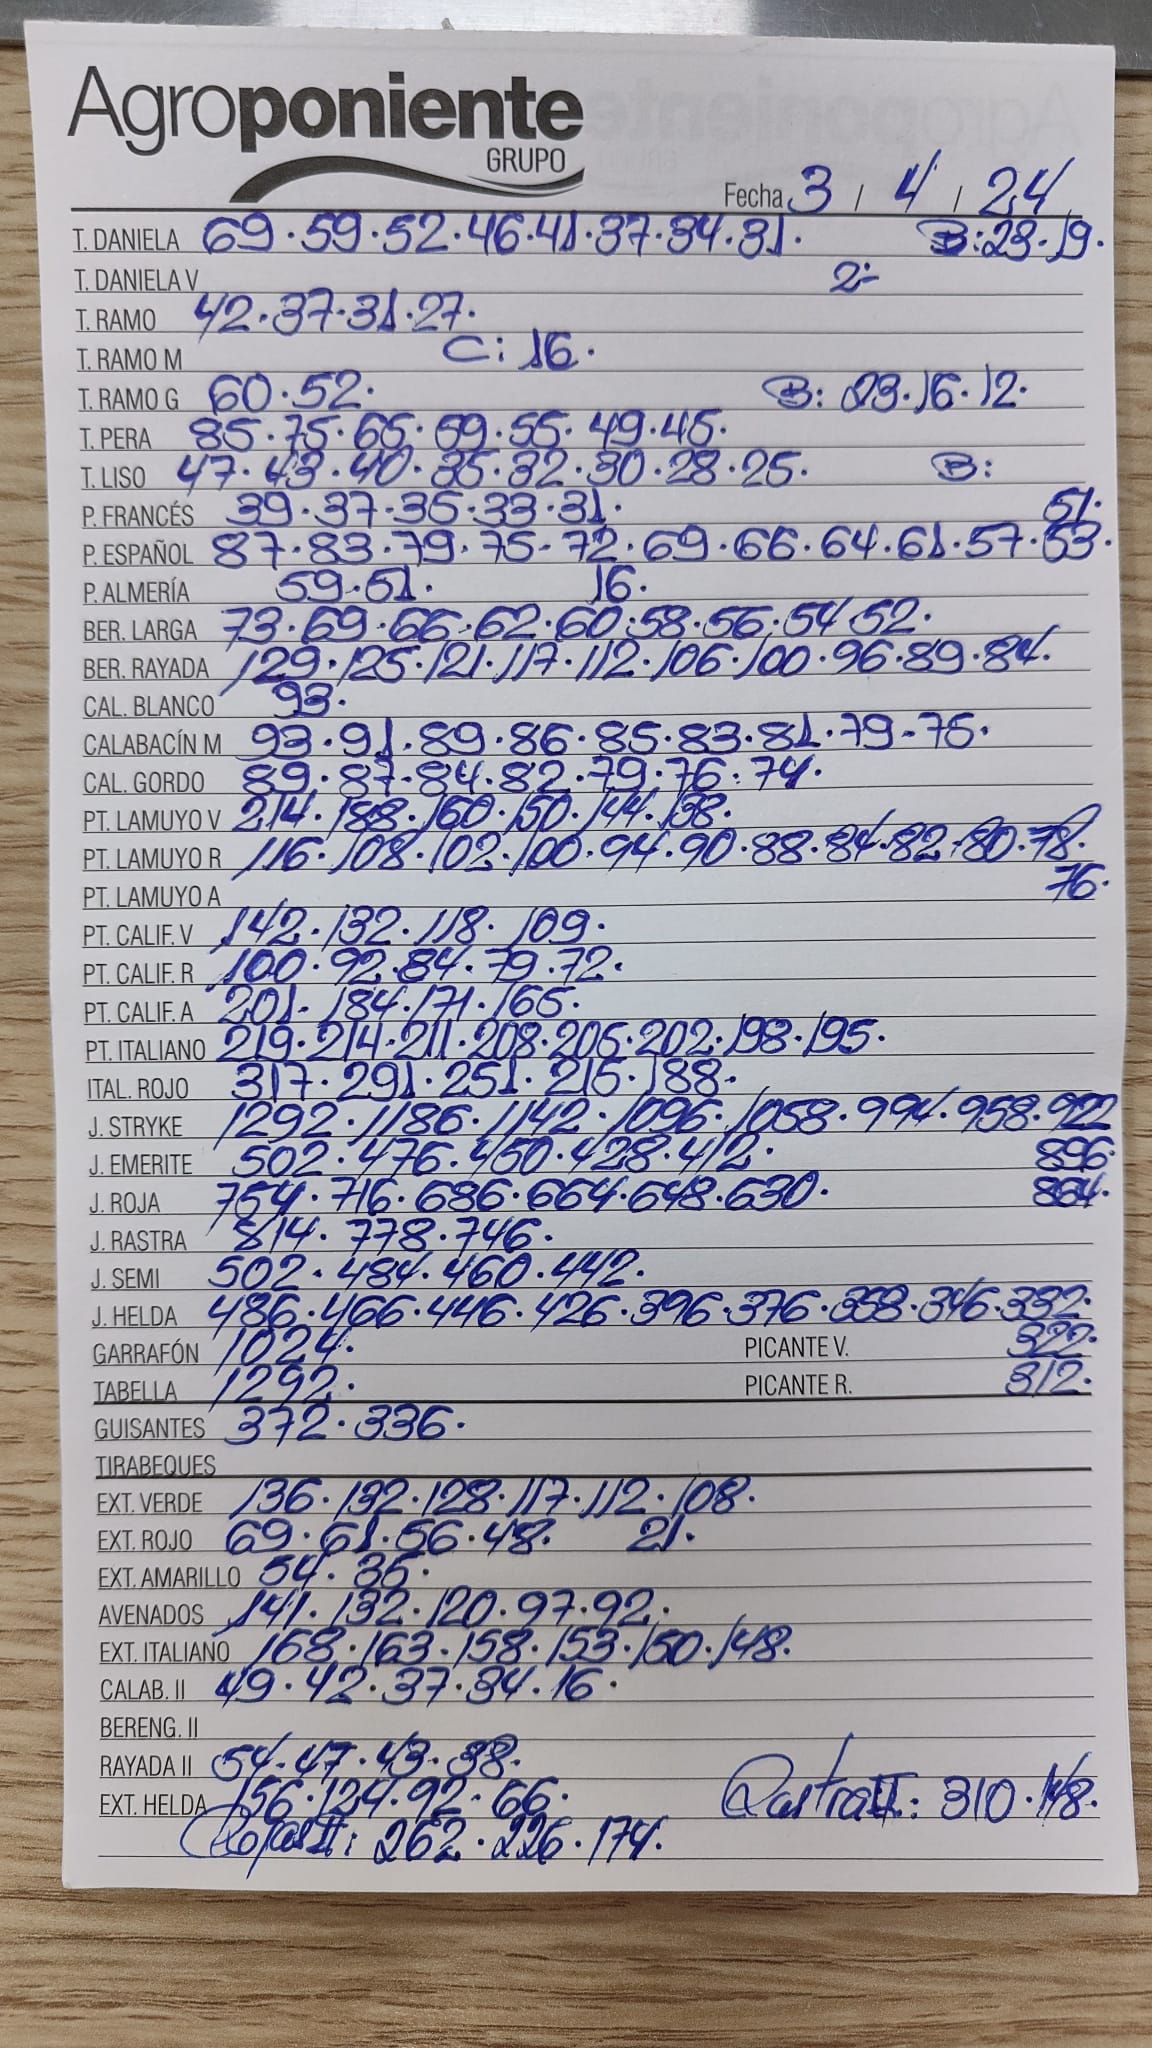 Agroponiente
GRUPO
Fecha 3 / 4 / 24
T. DANIELA 69.59.52.46.41.37.34.31. B:23.19.
T. DANELA V 2:-
T. RAMO 42.37.31.27.
T. RAMO M C: 16.
T. RAMO G 60.52. B: 23.16.12.
T. PERA 85.75.65.59.55.49.45.
T. LISO 47.43.40.35.32.30.28.25. B:
P. FRANCÉS 39.37.35.33.31. 51.
P. ESPAÑOL 87.83.79.75-72.69.66.64.61.57.53.
P. ALMERÍA 59.51. 16.
BER. LARGA 73.69.66.62.60.58.56.54.52.
BER. RAYADA 129.125.121.117.112.106.100.96.89.84.
CAL. BLANCO 93.
CALABACÍN M 93.91.89.86.85.83.81.79-75.
CAL. GORDO 89.87.84.82.79.76.74.
PT. LAMUYO V 214.188.160.150.144.138.
PT. LAMUYO R 116.108.102.100.94.90.88.84.82.80.78.
PT. LAMUYO A 76.
PT. CALIF. V 142.132.118.109.
PT. CALIF. R 100.92.84.79.72.
PT. CALIF. A 201.184.171.165.
PT. ITALIANO 219.214.211.208.205.202.198.195.
ITAL. ROJO 317.291.251.215.188.
J. STRYKE 1292.1186.1142.1096.1058.994.958.922
J. EMERITE 502.476.450.428.412. 896.
J. ROJA 754.716.686.664.648.630. 864.
J. RASTRA 814.778.746.
J. SEMI 502.484.460.442.
J. HELDA 486.466.446.426.396.376.358.346.332.
GARRAFÓN 1024. PICANTE V. 322.
TABELLA 1292. PICANTE R. 312.
GUISANTES 372.336.
TIRABEQUES
EXT. VERDE 136.132.128.117.112.108.
EXT. ROJO 69.61.56.48. 21.
EXT. AMARILLO 54.35.
AVENADOS 141.132.120.97.92.
EXT. ITALIANO 168.163.158.153.150.148.
CALAB. II 49.42.37.34.16.
BERENG. II
RAYADA II 54.47.43.38.
EXT. HELDA 156.124.92.66. Rastra II: 310.148.
Rojas II: 262.226.174.